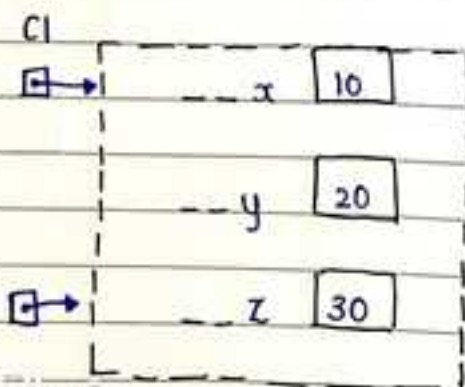 C1
__x 10
__y 20
__z 30